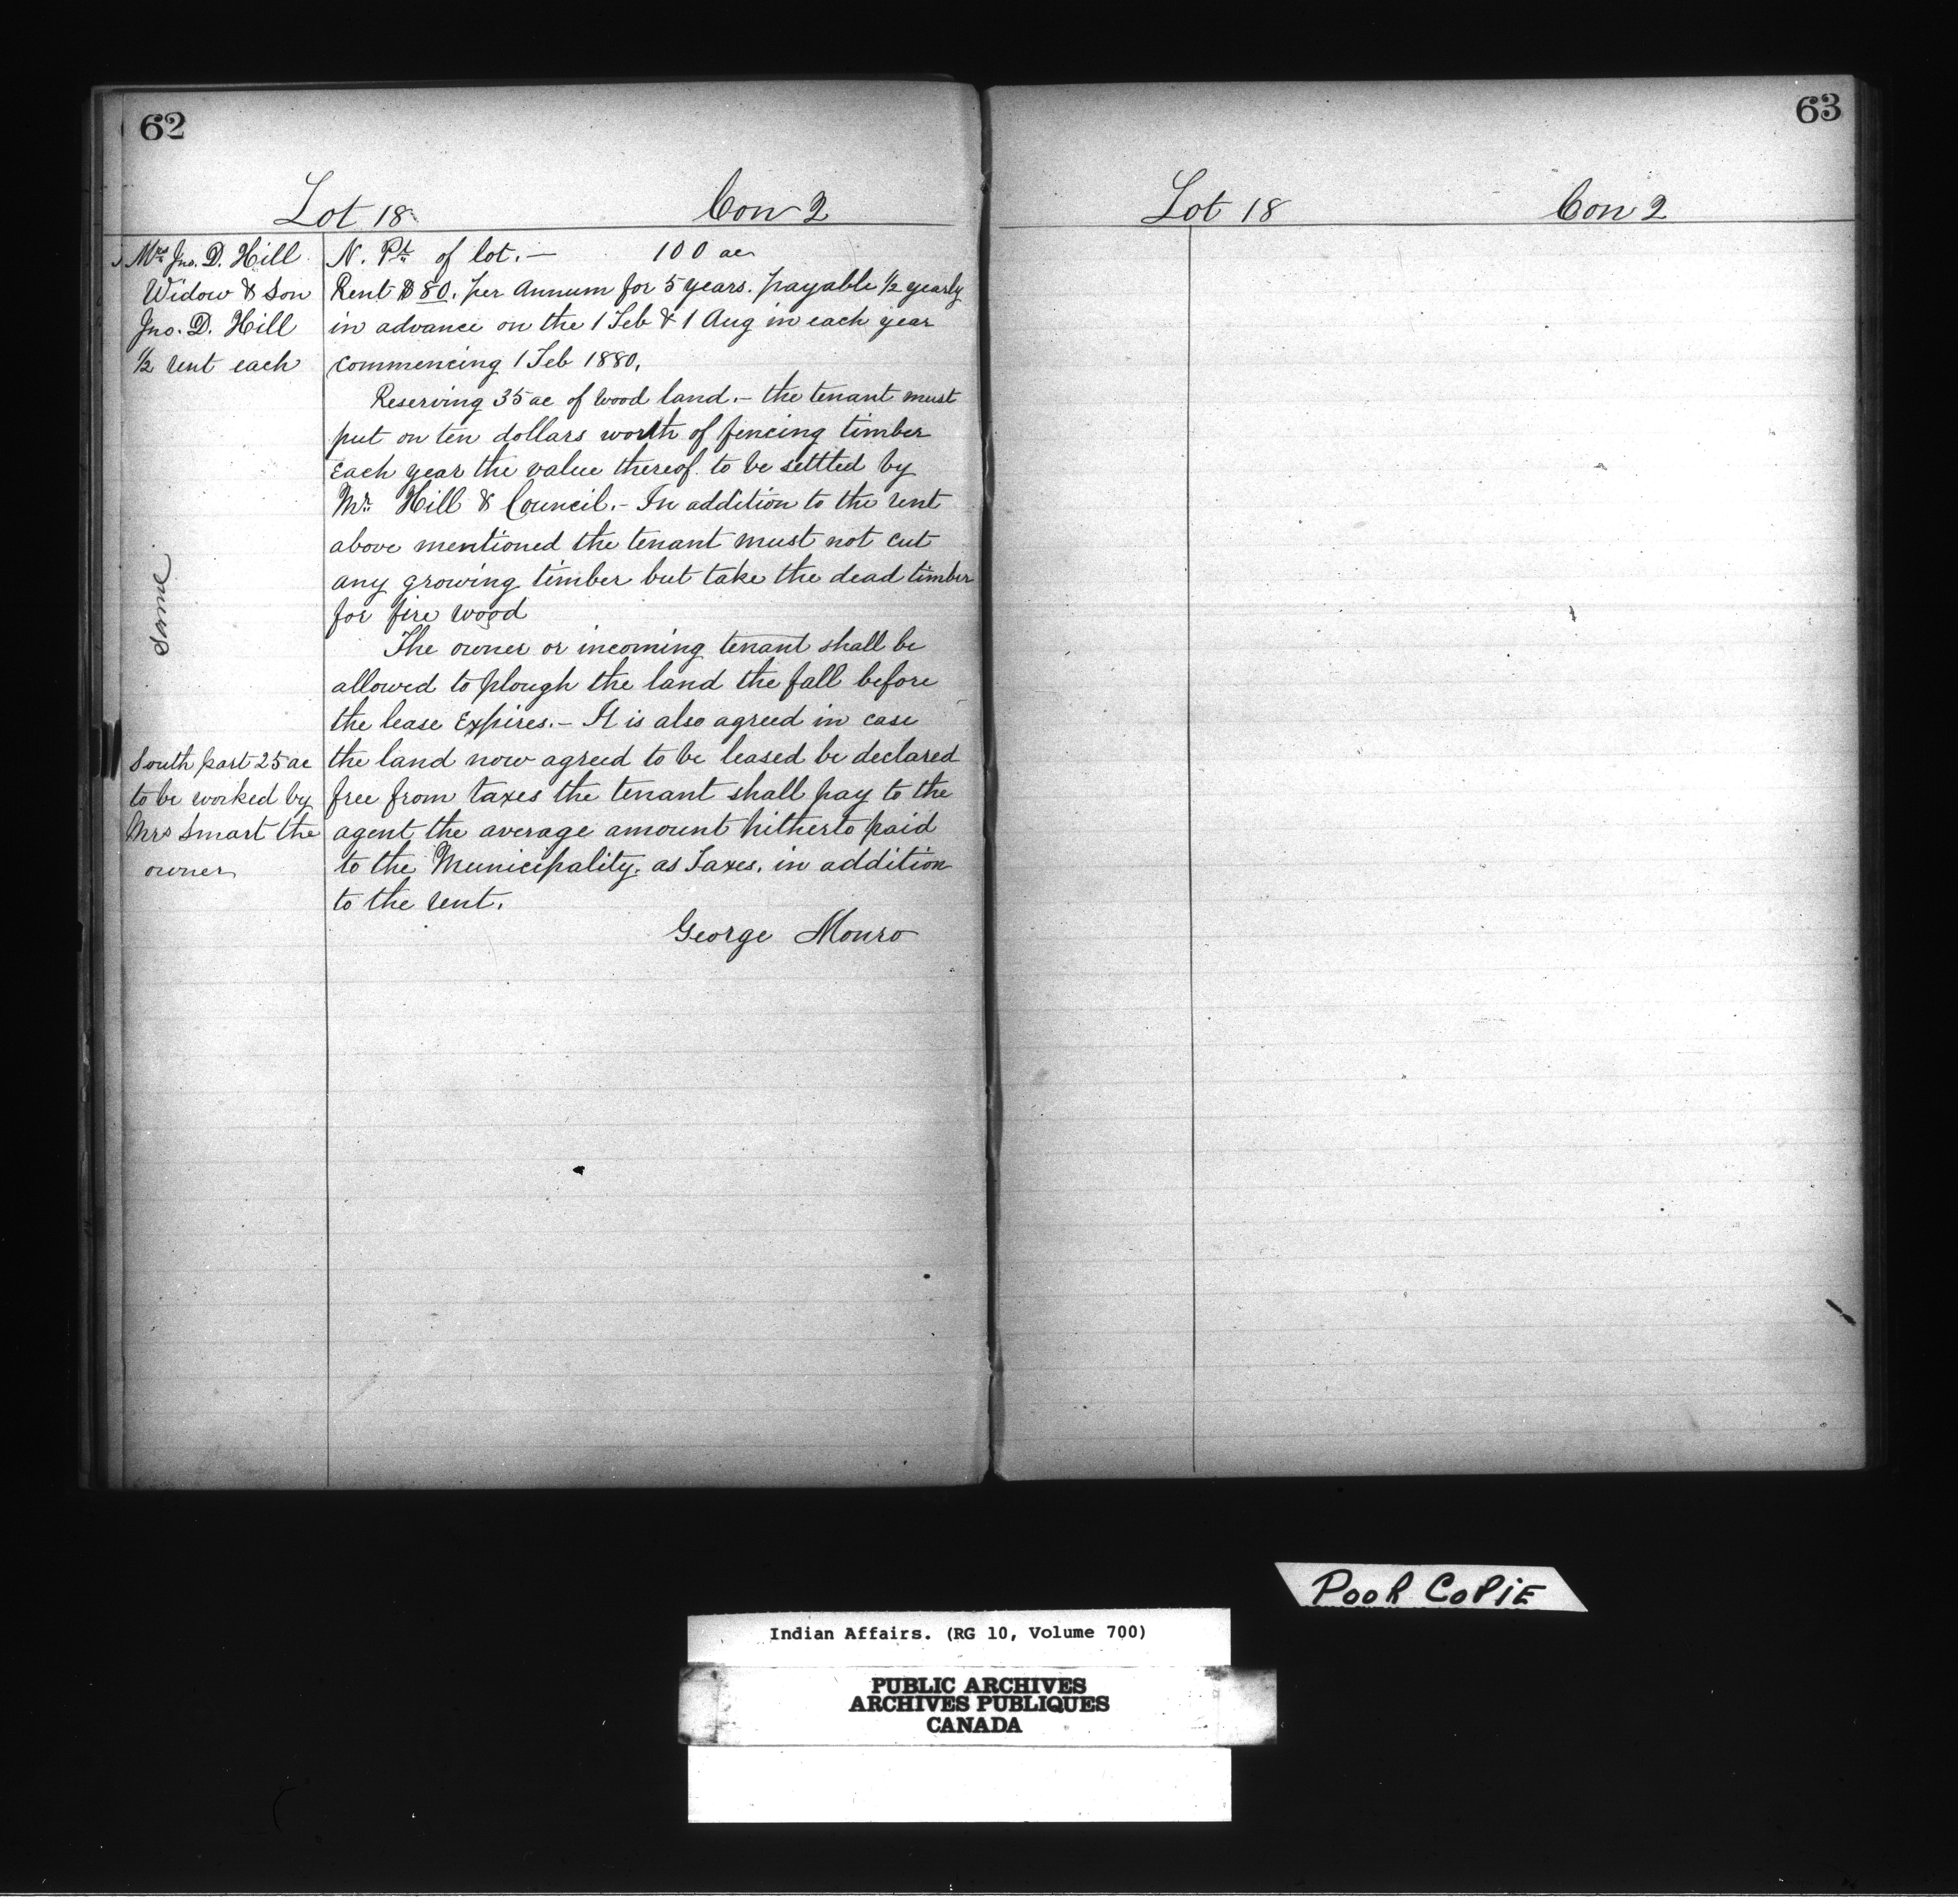 62
Lot 18 Con 2
Mrs Jno. D. Hill
Widow & Son
Jno. D. Hill
1/2 rent each
N. Pt. of lot. — 100 ac
Rent $80. per Annum for 5 years. payable 1/2 yearly
in advance on the 1 Feb & 1 Aug in each year
commencing 1 Feb 1880.
Reserving 35 ac of wood land. — the tenant must
put on ten dollars worth of fencing timber
Each year the value thereof to be settled by
Mr. Hill & Council. — In addition to the rent
above mentioned the tenant must not cut
any growing timber but take the dead timber
for fire wood
Same
The owner or incoming tenant shall be
allowed to plough the land the fall before
the lease Expires. — It is also agreed in case
the land now agreed to be leased be declared
free from taxes the tenant shall pay to the
agent the average amount hitherto paid
to the Municipality. as Taxes, in addition
to the rent.
South part 25 ac
to be worked by
Mrs Smart the
owner
George Monro
63
Lot 18 Con 2
Poor Copie
Indian Affairs. (RG 10, Volume 700)
PUBLIC ARCHIVES
ARCHIVES PUBLIQUES
CANADA